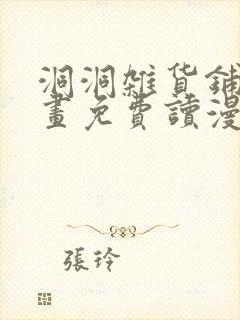 洞洞雜貨鋪
畫免費讀漫
張玲